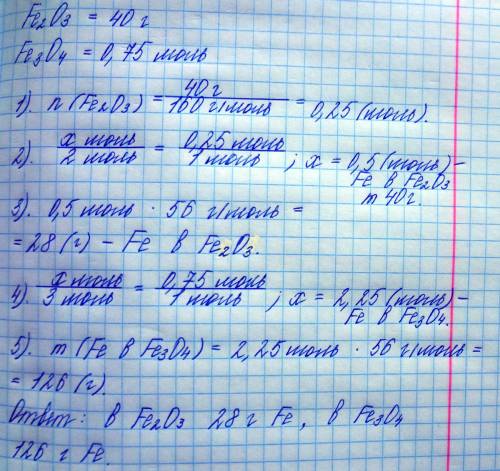 Fe₂O₃ = 40 г
Fe₃O₄ = 0,75 моль
1). n (Fe₂O₃) = 40 г / 160 г/моль = 0,25 (моль).
2). x моль / 2 моль = 0,25 моль / 1 моль ; x = 0,5 (моль) –
Fe в Fe₂O₃
m 40г.
3). 0,5 моль · 56 г/моль =
= 28 (г) – Fe в Fe₂O₃.
4). x моль / 3 моль = 0,75 моль / 1 моль ; x = 2,25 (моль) –
Fe в Fe₃O₄.
5). m (Fe в Fe₃O₄) = 2,25 моль · 56 г/моль =
= 126 (г).
Ответ: в Fe₂O₃ 28 г Fe, в Fe₃O₄
126 г Fe.